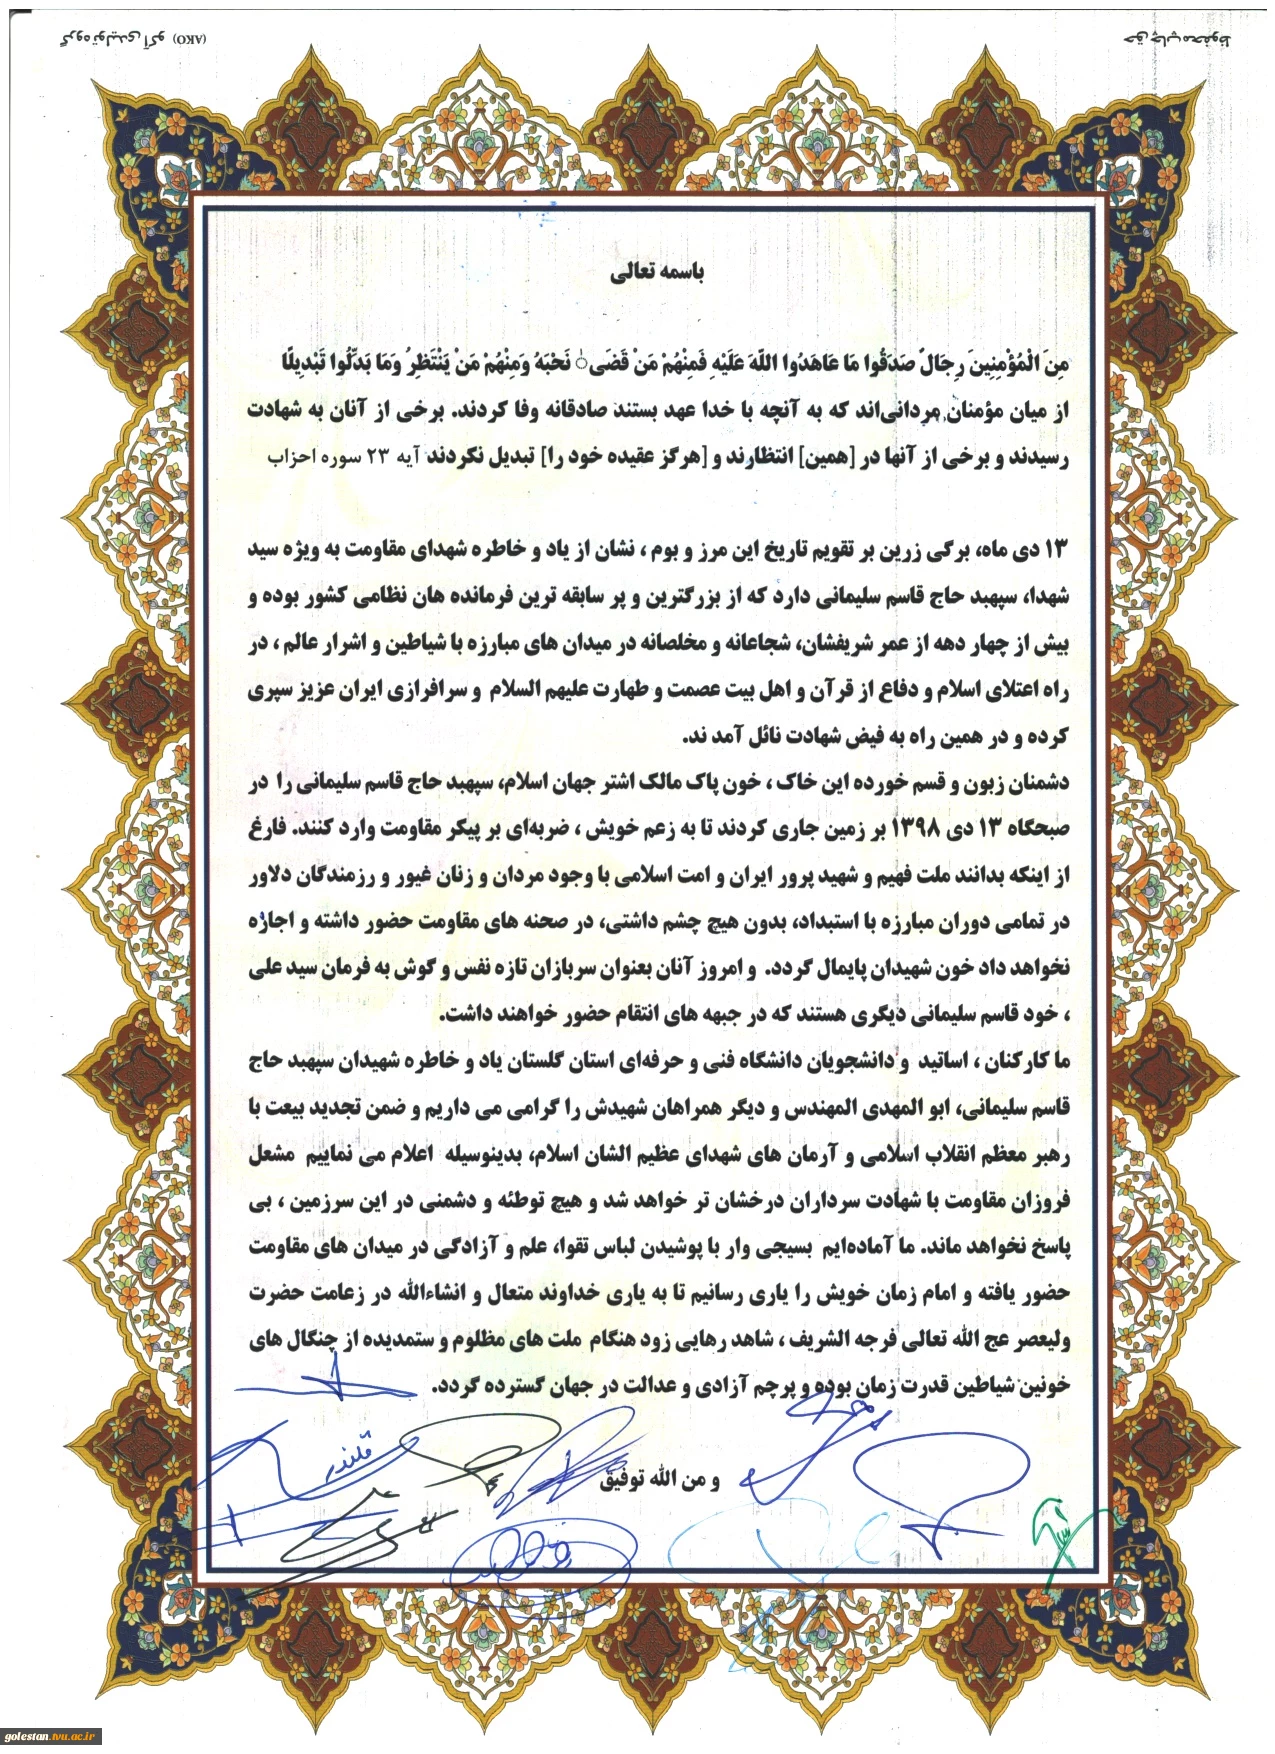 حق چاپ محفوظ
گروه تولیدی آکو (AKO)
باسمه تعالی
مِنَ الْمُؤْمِنِينَ رِجَالٌ صَدَقُوا مَا عَاهَدُوا اللَّهَ عَلَيْهِ فَمِنْهُمْ مَنْ قَضَىٰ نَحْبَهُ وَمِنْهُمْ مَنْ يَنْتَظِرُ وَمَا بَدَّلُوا تَبْدِيلًا
از میان مؤمنان مردانی‌اند که به آنچه با خدا عهد بستند صادقانه وفا کردند. برخی از آنان به شهادت
رسیدند و برخی از آنها در [همین] انتظارند و [هرگز عقیده خود را] تبدیل نکردند آیه ۲۳ سوره احزاب
۱۳ دی ماه، برگی زرین بر تقویم تاریخ این مرز و بوم ، نشان از یاد و خاطره شهدای مقاومت به ویژه سید
شهدا، سپهبد حاج قاسم سلیمانی دارد که از بزرگترین و پر سابقه ترین فرمانده هان نظامی کشور بوده و
بیش از چهار دهه از عمر شریفشان، شجاعانه و مخلصانه در میدان های مبارزه با شیاطین و اشرار عالم ، در
راه اعتلای اسلام و دفاع از قرآن و اهل بیت عصمت و طهارت علیهم السلام و سرافرازی ایران عزیز سپری
کرده و در همین راه به فیض شهادت نائل آمد ند.
دشمنان زبون و قسم خورده این خاک ، خون پاک مالک اشتر جهان اسلام، سپهبد حاج قاسم سلیمانی را در
صبحگاه ۱۳ دی ۱۳۹۸ بر زمین جاری کردند تا به زعم خویش ، ضربه‌ای بر پیکر مقاومت وارد کنند. فارغ
از اینکه بدانند ملت فهیم و شهید پرور ایران و امت اسلامی با وجود مردان و زنان غیور و رزمندگان دلاور
در تمامی دوران مبارزه با استبداد، بدون هیچ چشم داشتی، در صحنه های مقاومت حضور داشته و اجازه
نخواهد داد خون شهیدان پایمال گردد. و امروز آنان بعنوان سربازان تازه نفس و گوش به فرمان سید علی
، خود قاسم سلیمانی دیگری هستند که در جبهه های انتقام حضور خواهند داشت.
ما کارکنان ، اساتید و دانشجویان دانشگاه فنی و حرفه‌ای استان گلستان یاد و خاطره شهیدان سپهبد حاج
قاسم سلیمانی، ابو المهدی المهندس و دیگر همراهان شهیدش را گرامی می داریم و ضمن تجدید بیعت با
رهبر معظم انقلاب اسلامی و آرمان های شهدای عظیم الشان اسلام، بدینوسیله اعلام می نماییم مشعل
فروزان مقاومت با شهادت سرداران درخشان تر خواهد شد و هیچ توطئه و دشمنی در این سرزمین ، بی
پاسخ نخواهد ماند. ما آماده‌ایم بسیجی وار با پوشیدن لباس تقوا، علم و آزادگی در میدان های مقاومت
حضور یافته و امام زمان خویش را یاری رسانیم تا به یاری خداوند متعال و انشاءالله در زعامت حضرت
ولیعصر عج الله تعالی فرجه الشریف ، شاهد رهایی زود هنگام ملت های مظلوم و ستمدیده از چنگال های
خونین شیاطین قدرت زمان بوده و پرچم آزادی و عدالت در جهان گسترده گردد.
قلندر
و من الله توفیق
golestan.tvu.ac.ir